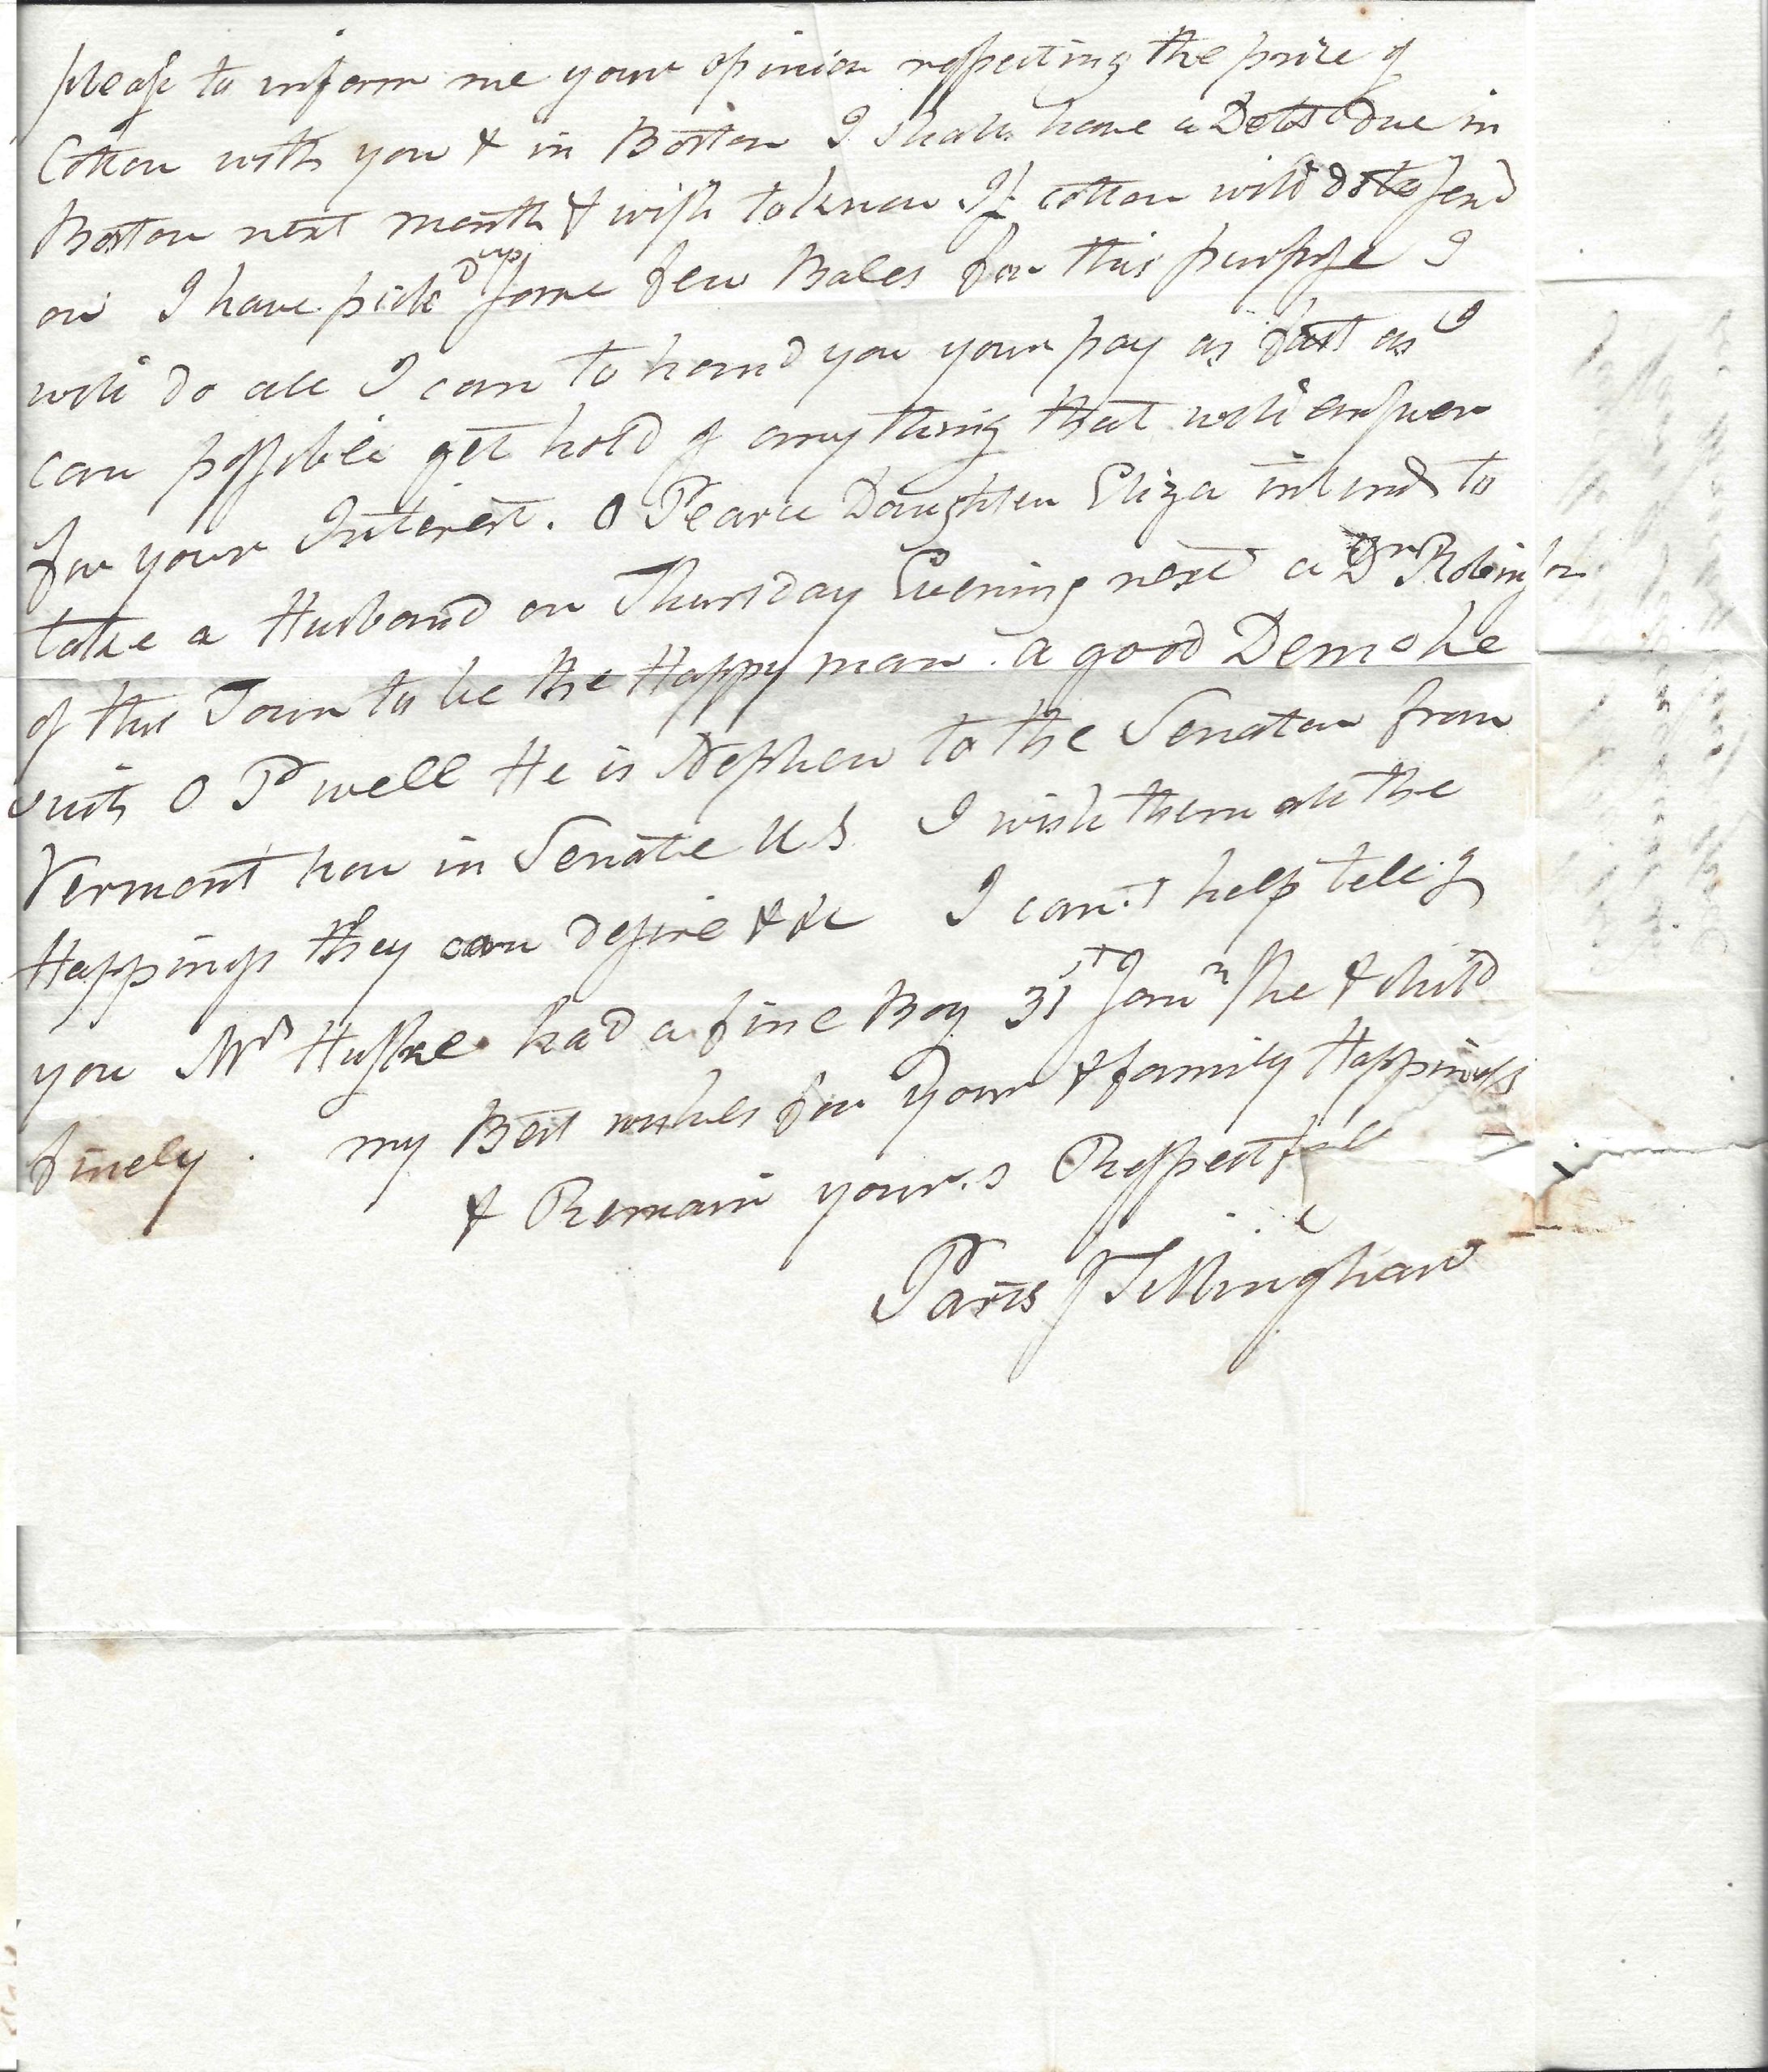 please to inform me your opinion respecting the price of
Cotton with you & in Boston I shall have a Debt due in
Boston next month & wish to know If cotton will do to send
on I have pickd up some few Bales for this purpose I
will do all I can to hand you your pay as fast as I
can possible get hold of any thing that will answer
for your Interest. O Pearce Daughter Eliza intends to
take a Husband on Thursday Evening next a Dr Robinson
of this Town to be the Happy man. a good Demo he
suits O P well He is Nephew to the Senator from
Vermont now in Senate U S I wish them all the
Happiness they can desire &&c I can.t help tellig
you Mrs Huske had a fine Boy 31st Janr she & child
finely. my Best wishes for your & family Happiness
& Remain your.s Respectfull
Paris J Tillinghast